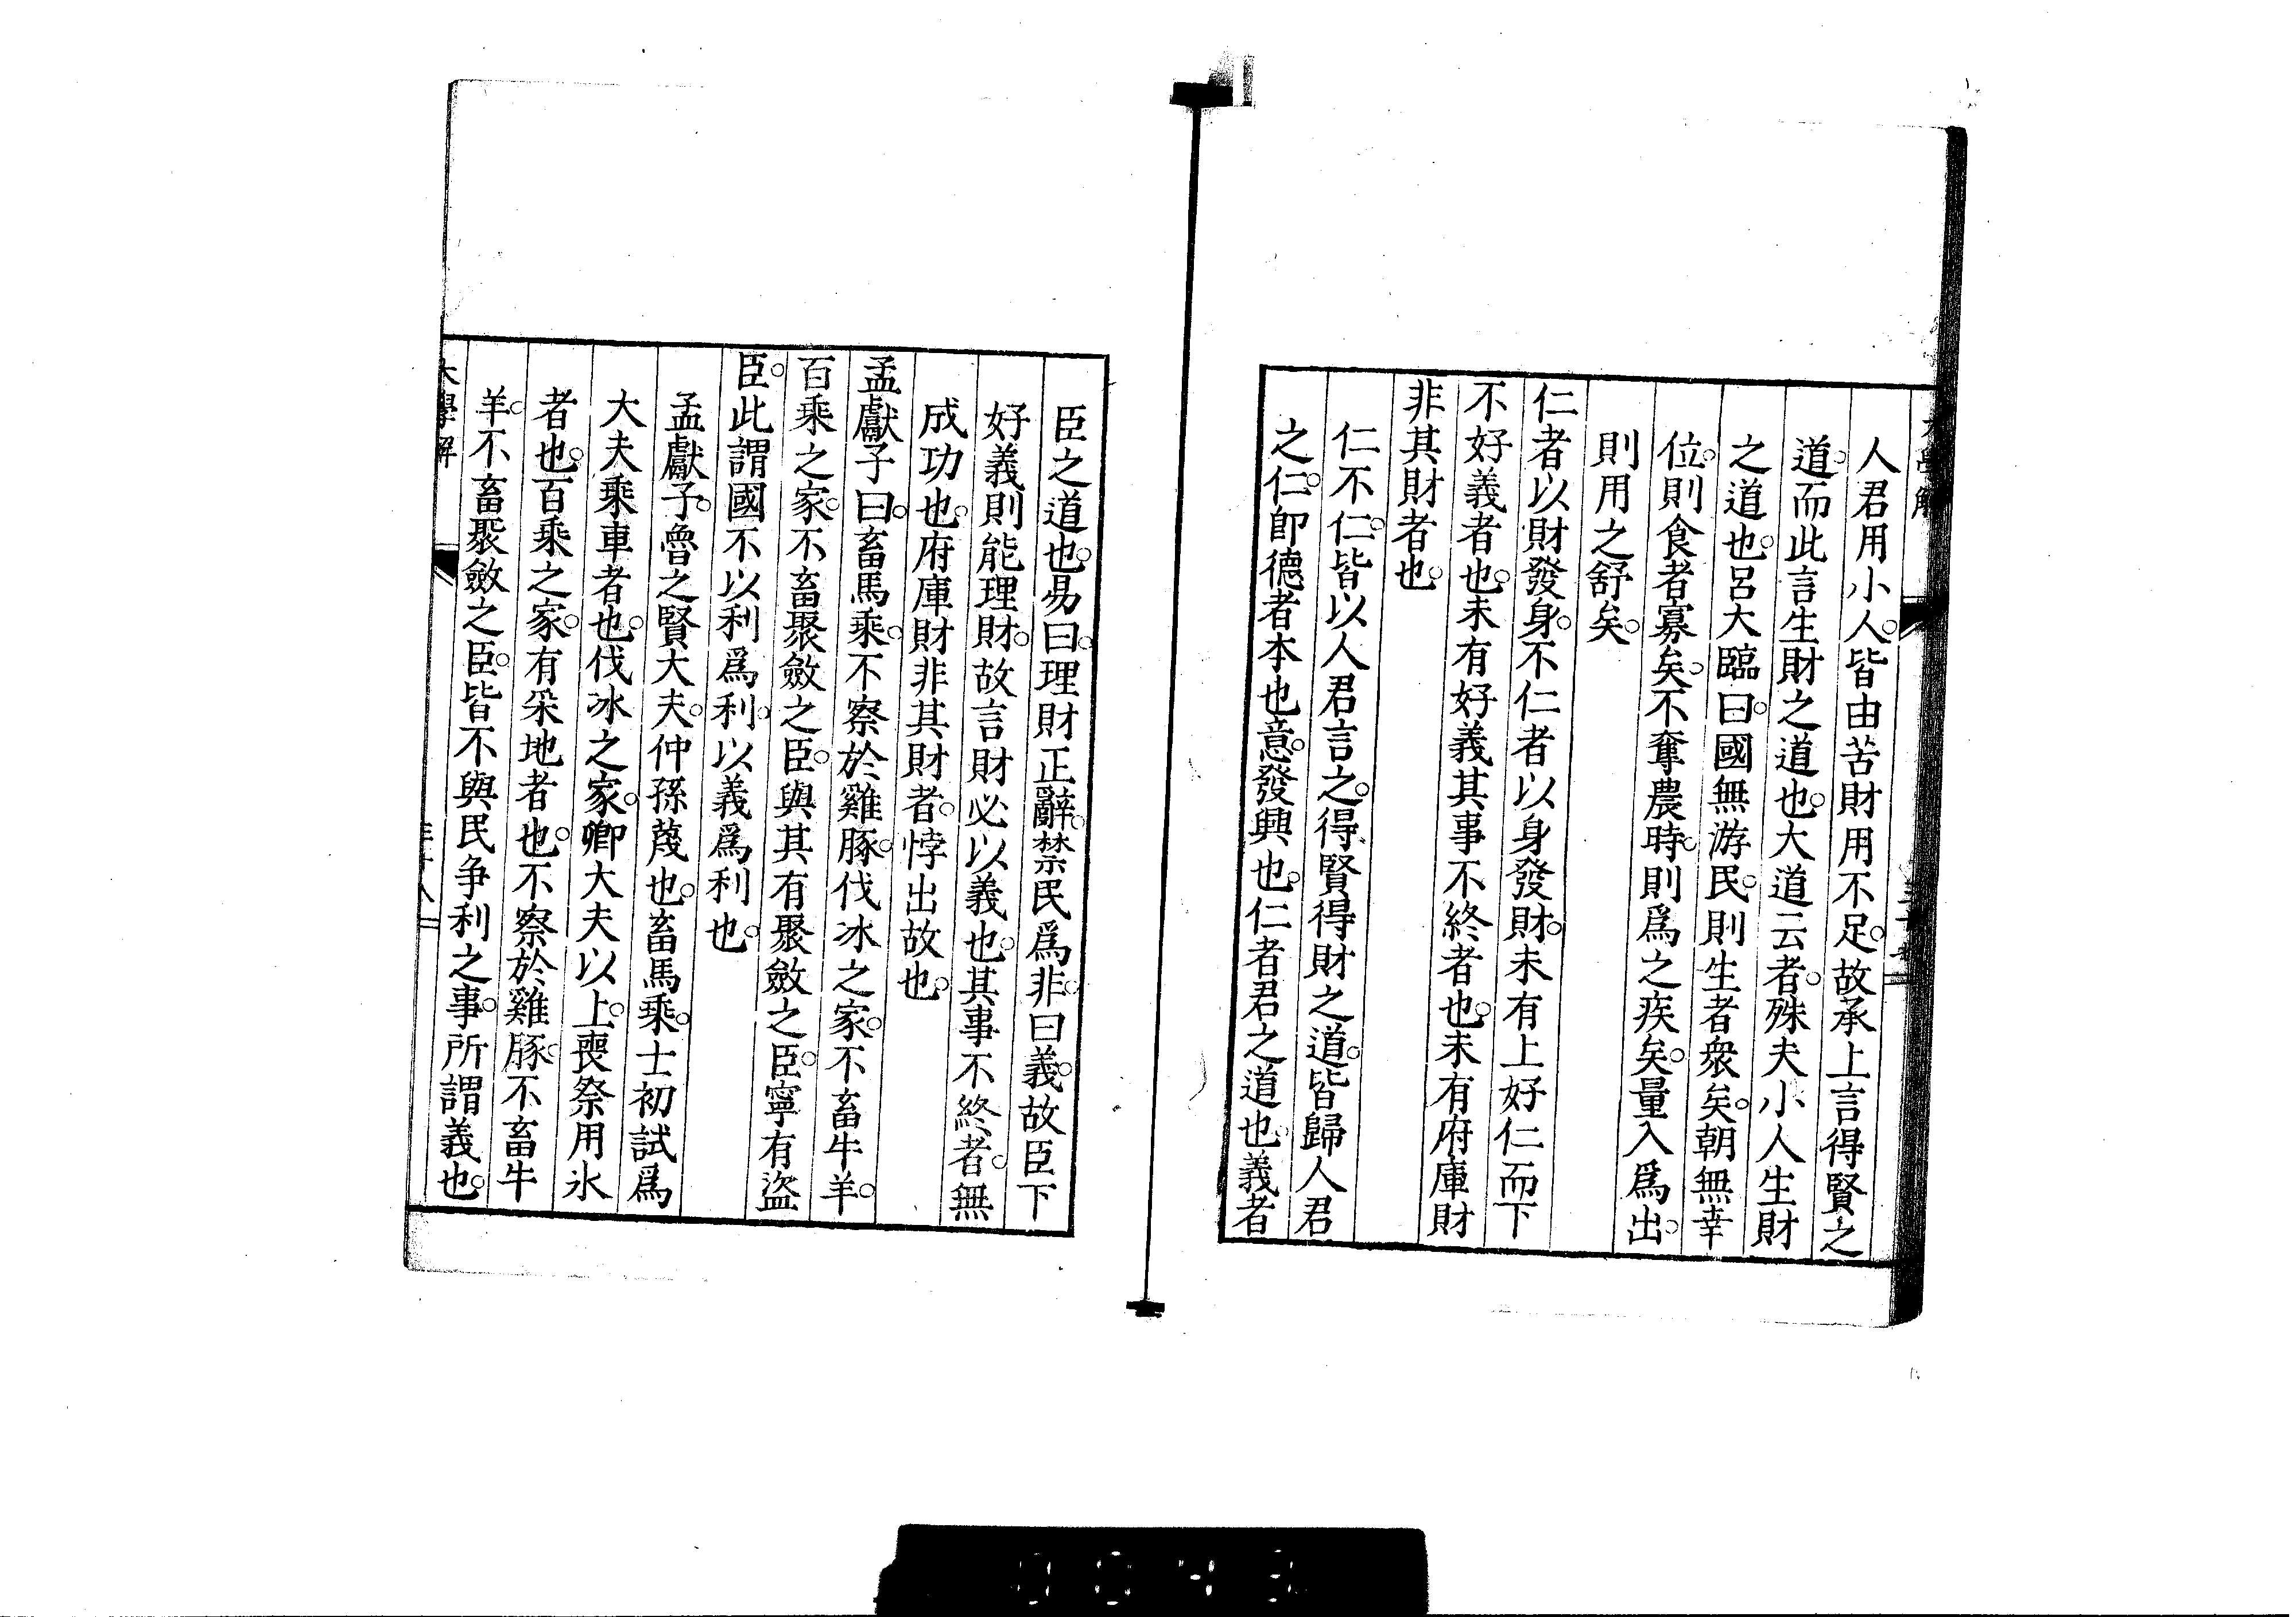 大學解
人君用小人。皆由苦財用不足。故承上言得賢之
道。而此言生財之道也。大道云者。殊夫小人生財
之道也。呂大臨曰。國無游民。則生者衆矣。朝無幸
位。則食者寡矣。不奪農時。則爲之疾矣。量入爲出。
則用之舒矣。
仁者以財發身。不仁者以身發財。未有上好仁而下
不好義者也。未有好義其事不終者也。未有府庫財
非其財者也。
仁不仁。皆以人君言之。得賢得財之道。皆歸人君
之仁。卽德者本也意。發興也。仁者君之道也。義者
臣之道也。易曰。理財正辭。禁民爲非。曰義。故臣下
好義則能理財。故言財必以義也。其事不終者。無
成功也。府庫財非其財者。悖出故也。
孟獻子曰。畜馬乘。不察於雞豚。伐冰之家。不畜牛羊。
百乘之家。不畜聚斂之臣。與其有聚斂之臣。寧有盜
臣。此謂國不以利爲利。以義爲利也。
孟獻子。魯之賢大夫。仲孫蔑也。畜馬乘。士初試爲
大夫乘車者也。伐冰之家。卿大夫以上。喪祭用氷
者也。百乘之家。有采地者也。不察於雞豚。不畜牛
羊。不畜聚斂之臣。皆不與民争利之事。所謂義也。
大學解